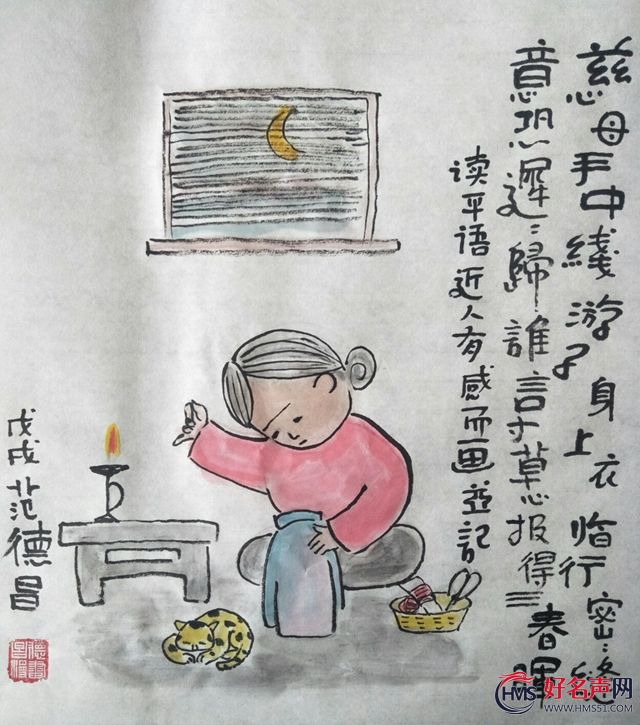 慈母手中綫游子身上衣临行密〻缝
意恐遲〻歸誰言寸草心报得三
春暉
读平语近人有感而画並記
戊戌范德昌
HMS 好名声网
WWW.HMS51.COM